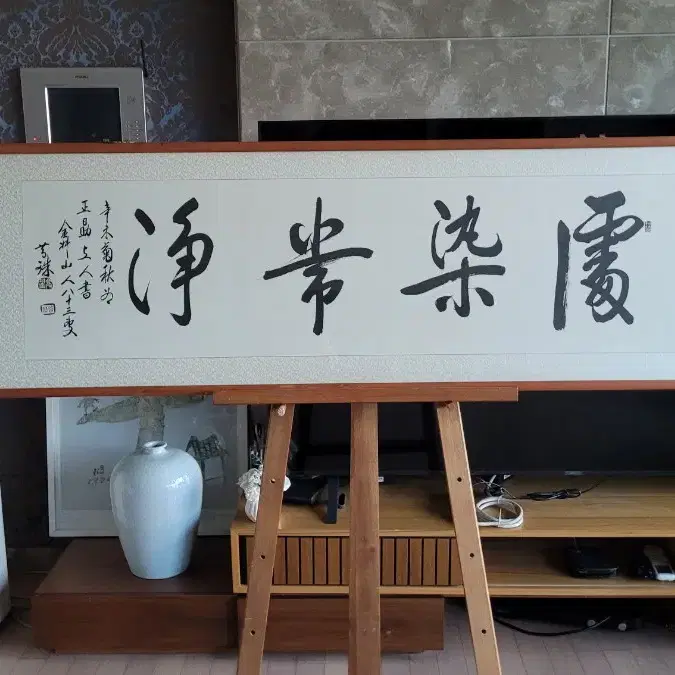 處染常淨
辛未菊秋為
正勗 人書
金井山人八十三叟